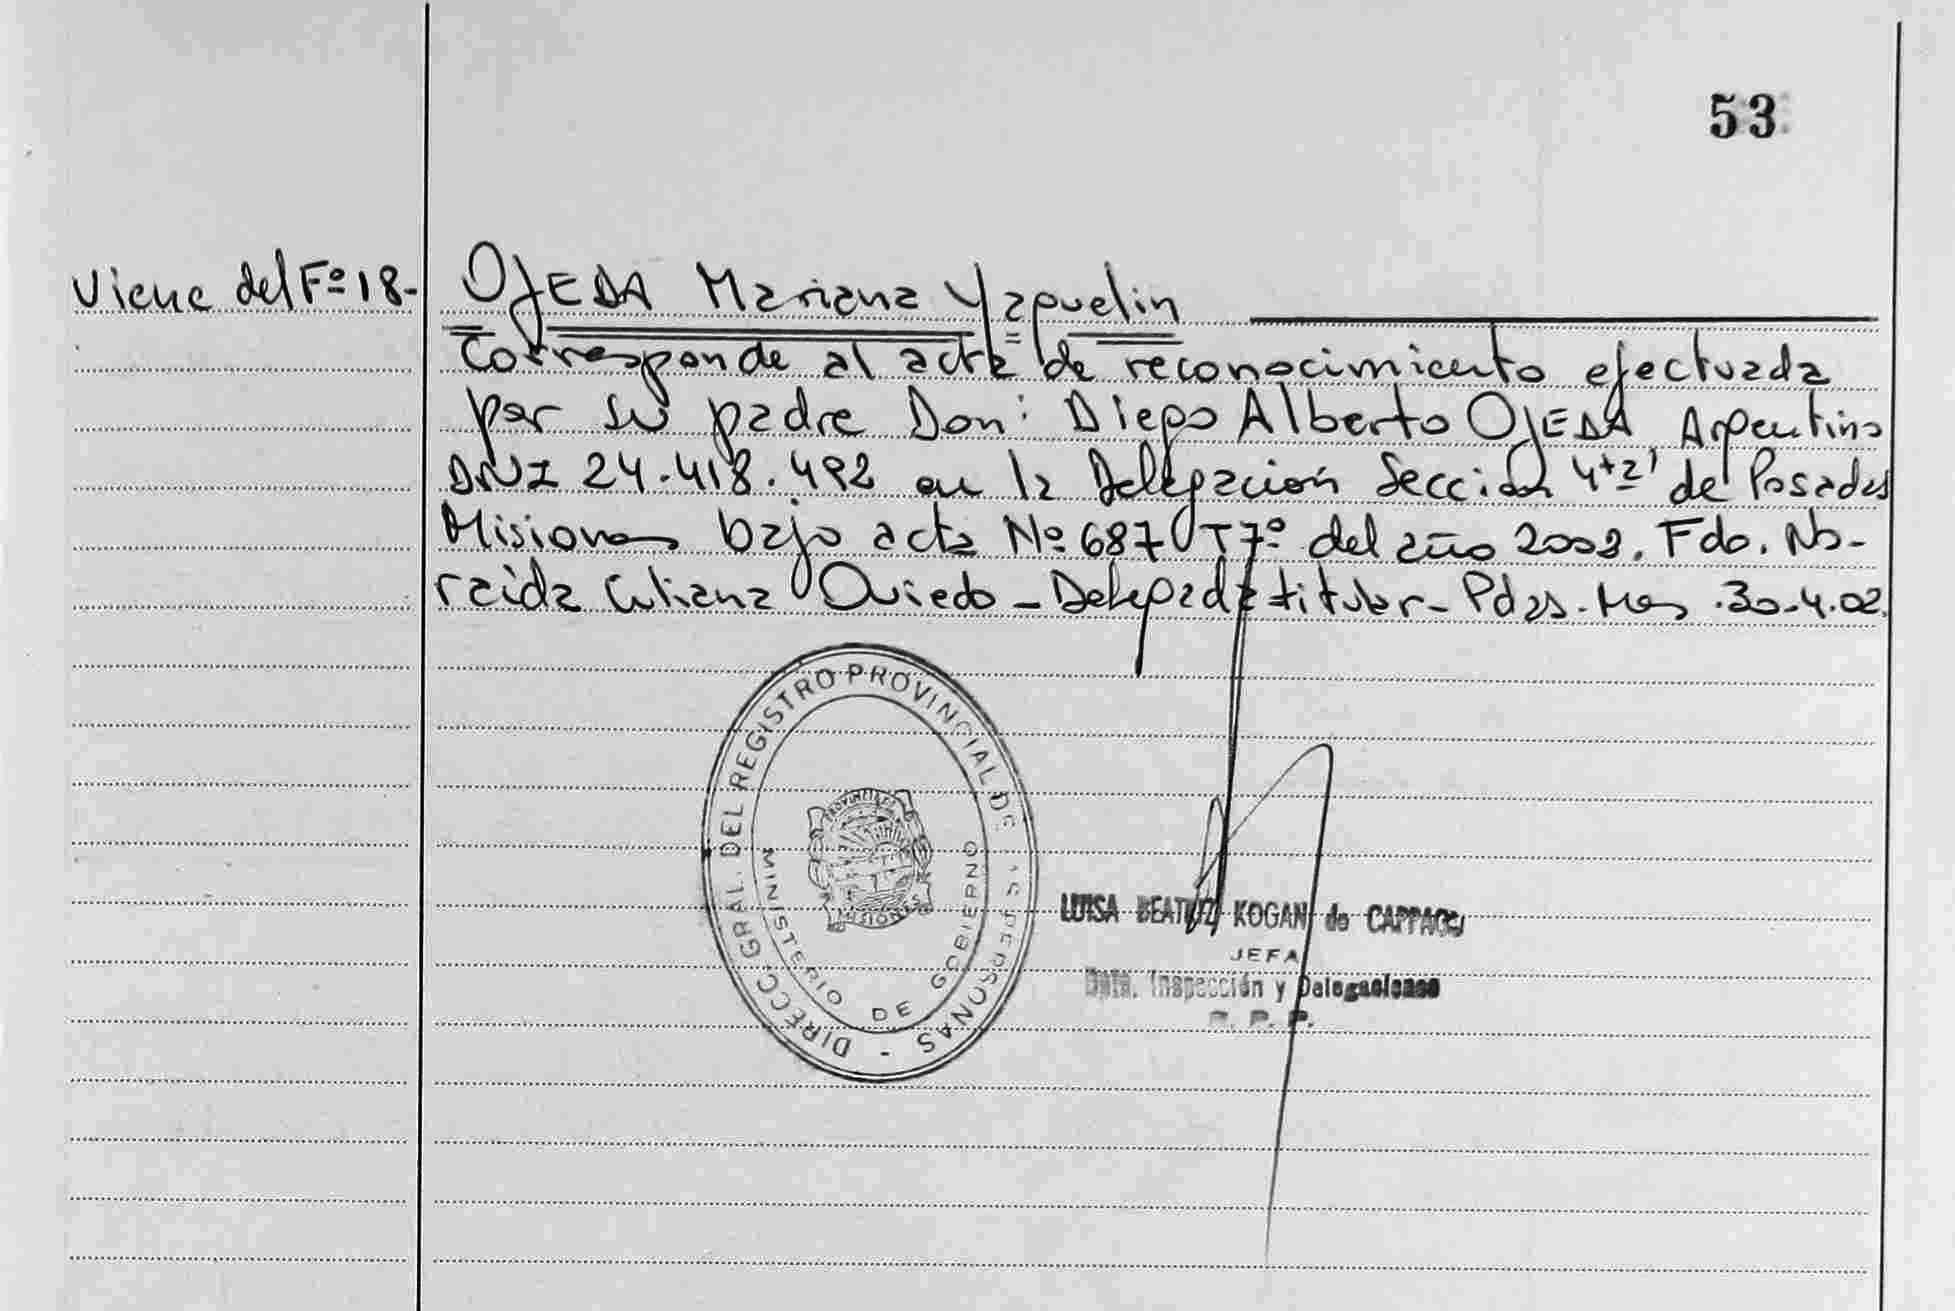 53
Viene del Fº 18-
OJEDA Mariana Yaquelin
Corresponde al acta de reconocimiento efectuada
por su padre Don: Diego Alberto OJEDA Argentino
DNI 24.418.492 en la Delegación Sección 4ta de Posadas
Misiones bajo acta Nº 687 T7º del año 2002. Fdo. No-
raida Oviedo - Delegada titular - Pdas. Mes. 30-4-02.
DIRECC. GRAL. DEL REGISTRO PROVINCIAL DE LAS PERSONAS -
MINISTERIO DE GOBIERNO
PROVINCIA DE
MISIONES
LUISA BEATRIZ KOGAN de
JEFA
Dpto. Inspección y Delegaciones
R. P. P.